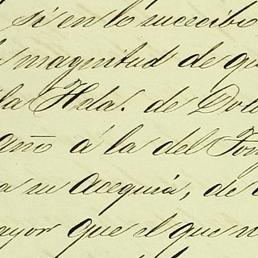 si en lo sucecibo
magnitud de que
la Hda. de Dolo
año á la del Fu
a su acequia, de
ayor que el que n